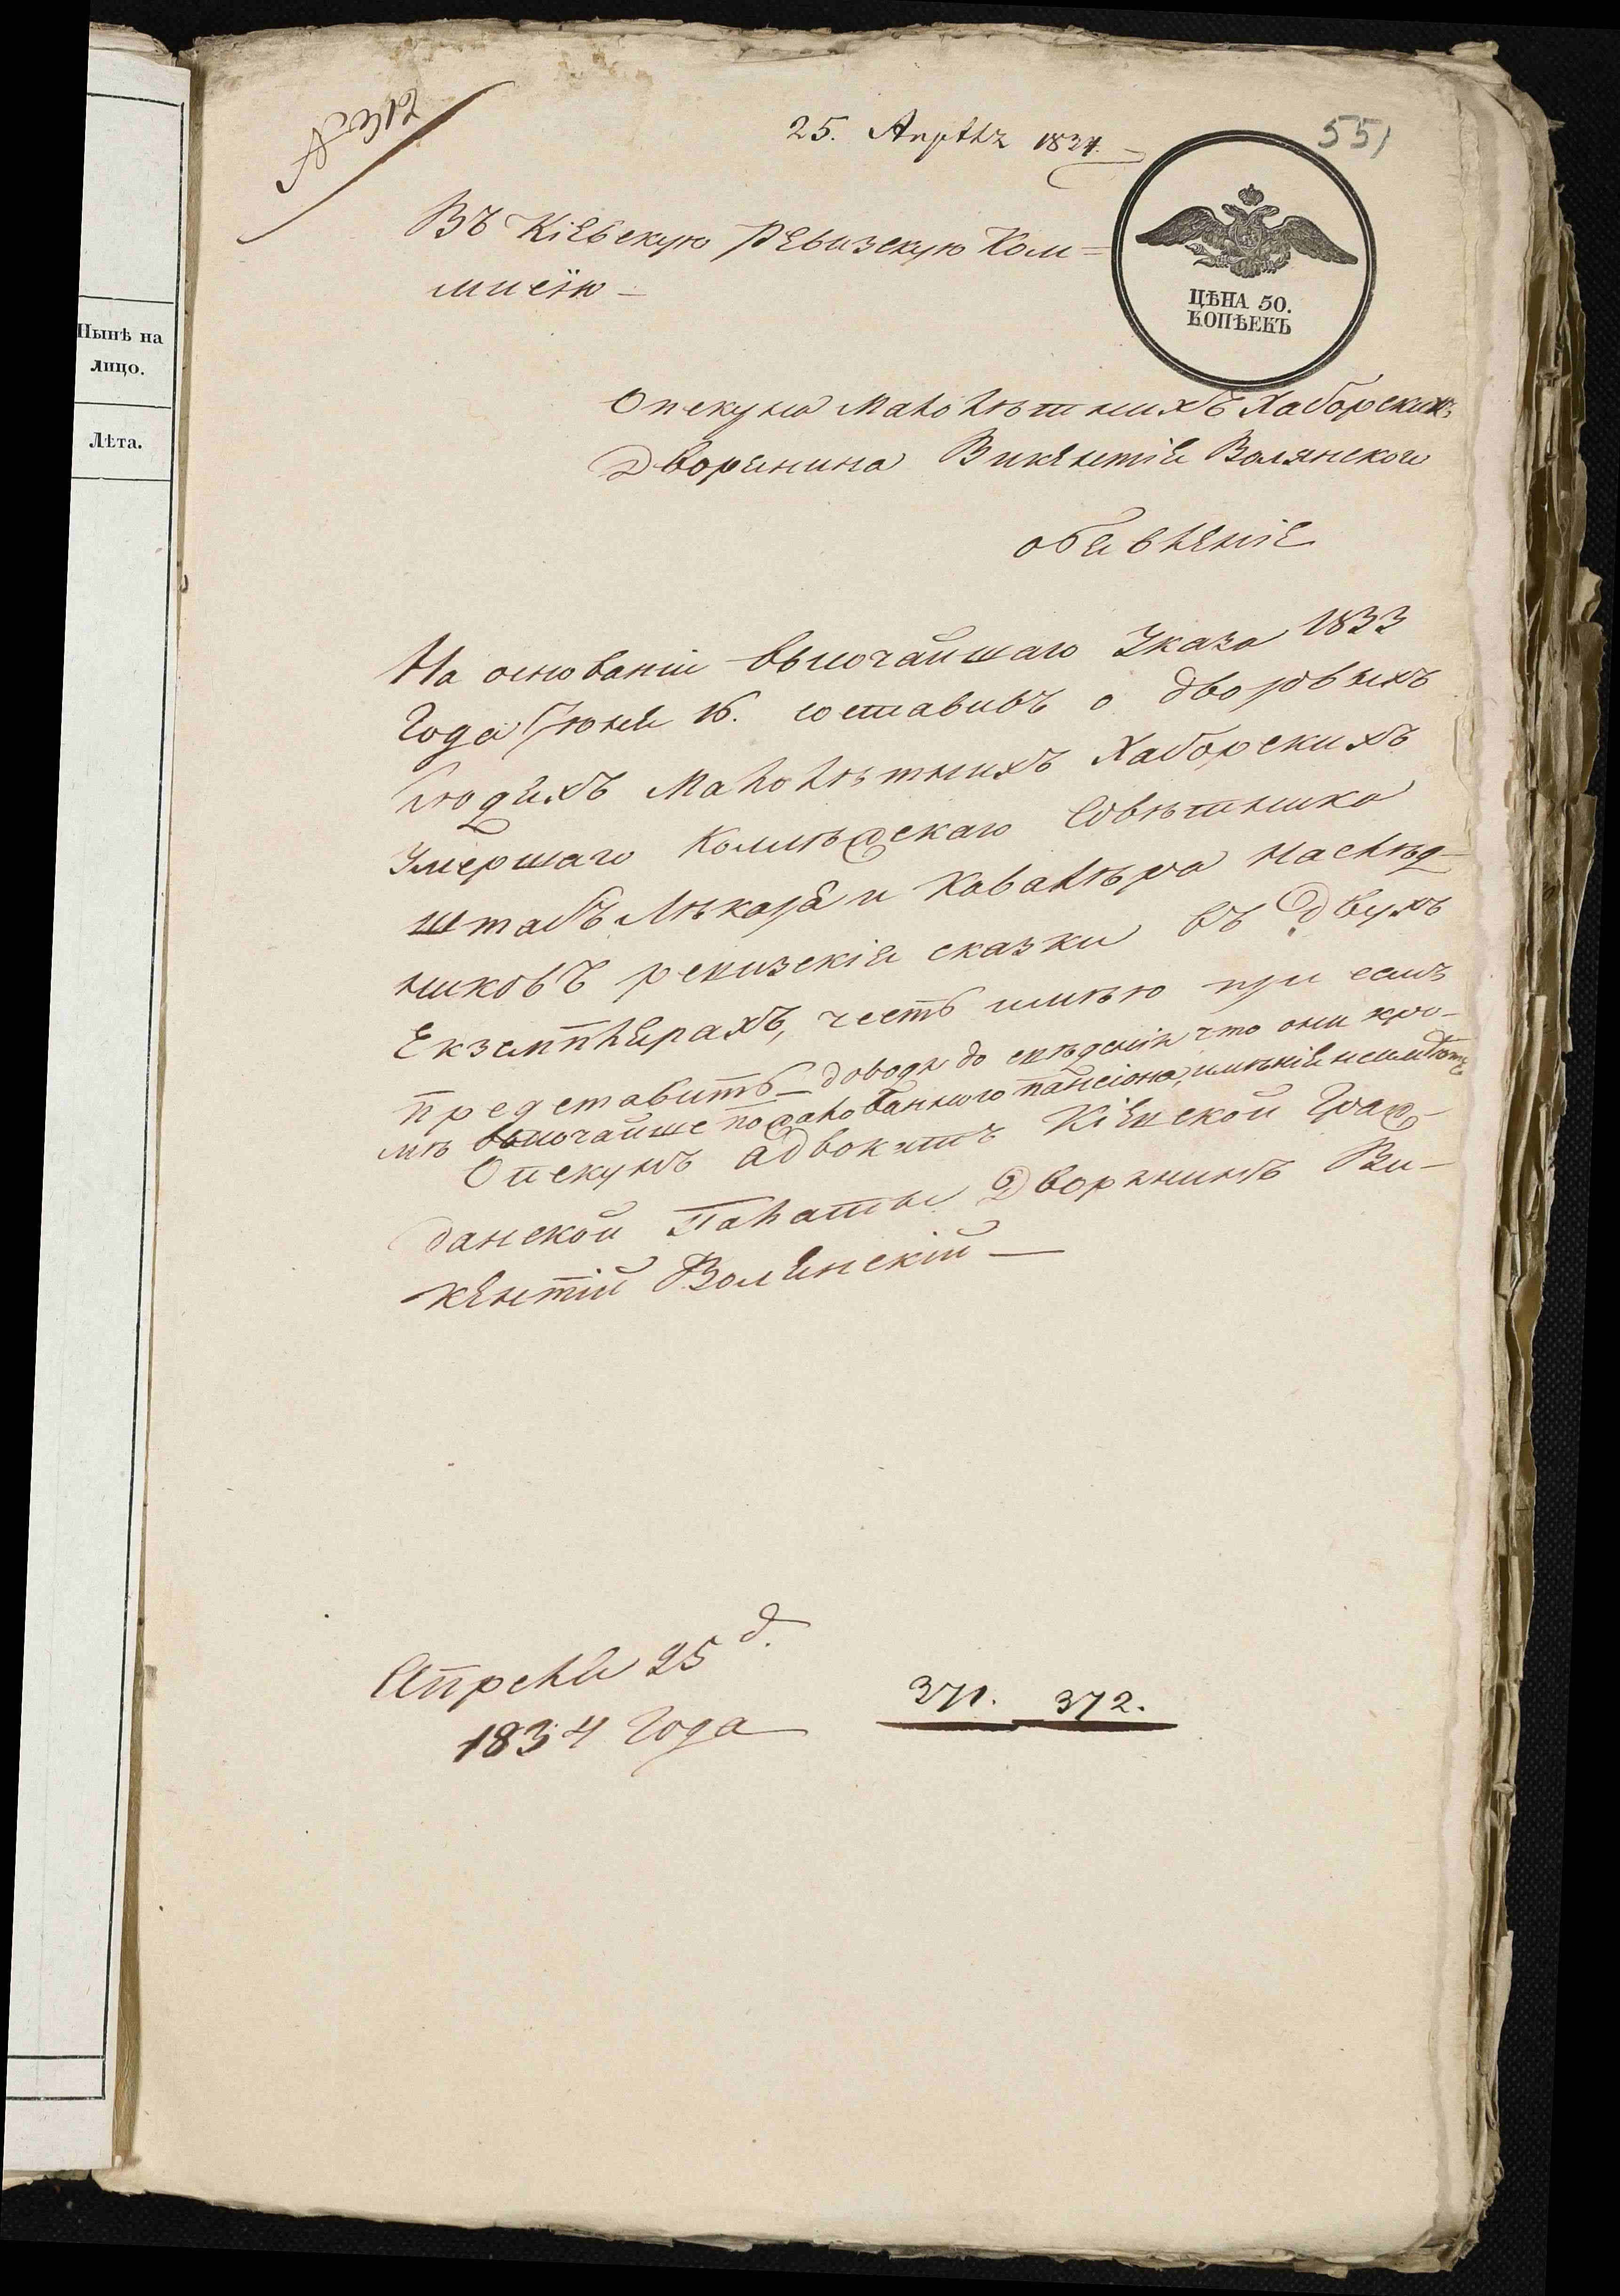 Нынѣ на
лицо.
Лѣта.
№ 612
25. Апрѣль 1834.
551
Въ Кіевскую Ревизскую Ком=
мисію
ЦѢНА 50.
КОПѢЕКЪ
Опекуна Малолѣтнихъ Хаборскихъ
Дворянина Викентія Волянского
объявленіе
На основаніи высочайшаго Указа 1833
Года Іюня 16. составивъ о дворовыхъ
Людяхъ Малолѣтнихъ Хаборскихъ
Умершаго Коллѣжскаго Совѣтника
Штабъ Лѣкаря и Кавалѣра Наслѣд-
никовъ ревизскія сказки въ Двухъ
Екземплярахъ, честь имѣю при семъ
представить - доводя до свѣденія что они кро-
мѣ высочайше пожалованного пансіона, имѣнія неимѣютъ
Опекунъ адвокатъ Кіевской Граж-
данской Палаты Дворянинъ Ви-
кентій Волянскій
Апреля 25 д.
1834 Года
371. 372.